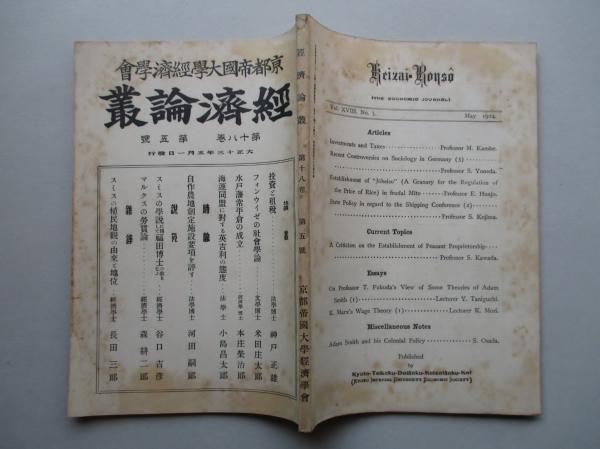 京都帝國大學經濟學會
經濟論叢
第十八卷 第五號
大正十三年五月一日發行
論叢
投資と租稅 法學博士 神戶正雄
フォンウイゼの社會學論 文學博士 米田庄太郎
水戶藩常平倉の成立 經濟學博士 本庄榮治郎
海運同盟に對する英吉利の態度 法學士 小島昌太郎
時論
自作農地創定施設要項を評す 法學博士 河田嗣郎
說苑
スミスの學說に關する福田博士の
經濟學士 谷口吉彥
マルクスの勞賃論 經濟學士 森耕二郎
雜錄
スミスの植民地觀の由來と地位 經濟學士 長田三郎
經濟論叢 第十八卷 第五號 京都帝國大學經濟學會
Keizai-Ronsô
(THE ECONOMIC JOURNAL)
Vol. XVIII. No. 5. May 1924.
Articles
Investments and Taxes Professor M. Kambe.
Recent Controversies on Sociology in Germany (3)
Professor S. Yoneda.
Establishment of "Jôheisô" (A Granary for the Regulation of
the Price of Rice) in feudal Mito Professor E. Honjo.
State Policy in regard to the Shipping Conference (2)
Professor S. Kojima.
Current Topics
A Criticism on the Establishment of Peasant Proprietorship
Professor S. Kawada.
Essays
On Professor T. Fukuda's View of Some Theories of Adam
Smith (1) Lecturer Y. Taniguchi.
K. Marx's Wage Theory (1) Lecturer K. Mori.
Miscellaneous Notes
Adam Smith and his Colonial Policy S. Osada.
Published
by
Kyoto-Teikoku-Daigaku-Keizaigaku-Kai
(KYOTO IMPERIAL UNIVERSITY ECONOMIC SOCIETY)